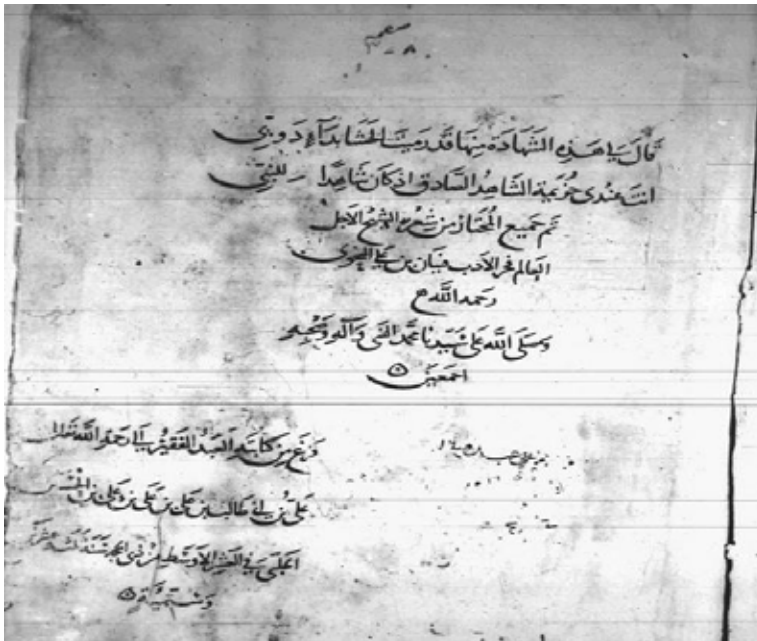 قال يا هذه الشهادة منها قد رمينا الحشا بداء دوي
انت عندي خزيمة الشاهد الصادق اذ كان شاهدا للنبي
تم جميع المختار من شعر الشيخ الاجل
العالم فخر الادب فتيان بن علي النحوي
رحمه الله
وصلى الله على سيدنا محمد النبي وآله وصحبه
اجمعين
فرغ من كتابته العبد الفقير الى رحمة الله تعالى
علي بن ابي طالب بن علي بن علي بن علي بن
في العشر الاوسط من ذي الحجة سنة
وستمية